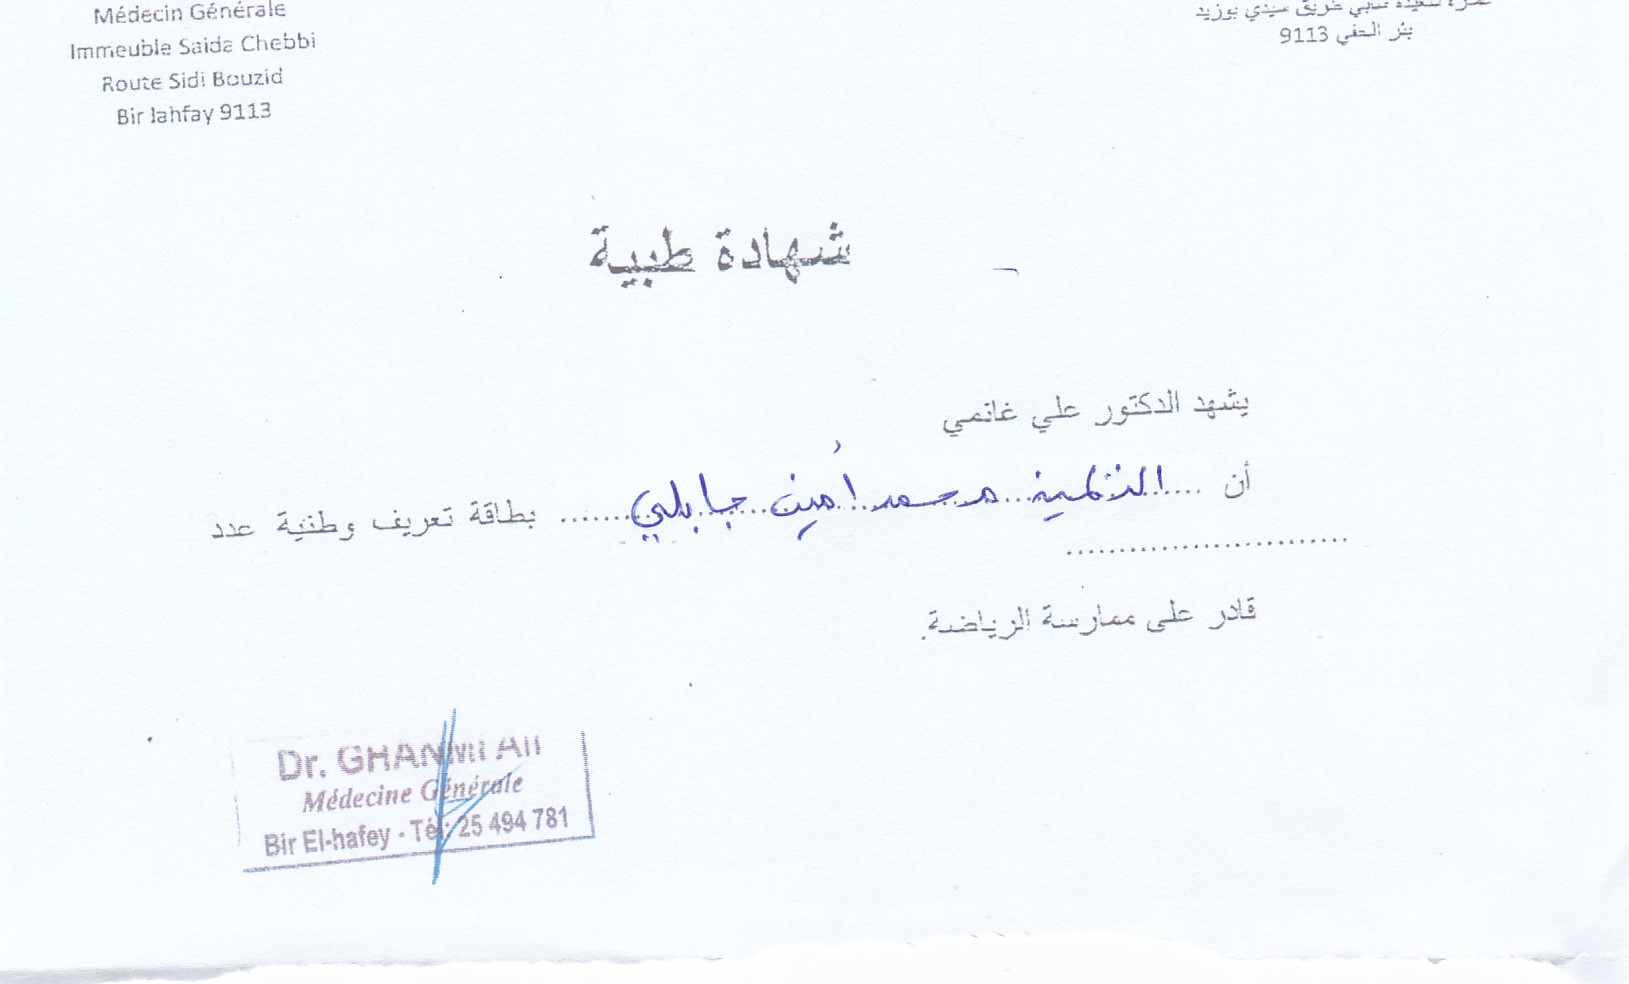 Médecin Générale
Immeuble Saida Chebbi
Route Sidi Bouzid
Bir lahfay 9113
طريق سيدي بوزيد
بئر الحفي 9113
شهادة طبية
يشهد الدكتور علي غانمي
أن .... التلميذ محمد أمين جابلي ....... بطاقة تعريف وطنية عدد
...........................
قادر على ممارسة الرياضة.
Dr. GHANMI Ali
Médecine Générale
Bir El-hafey - Tél: 25 494 781